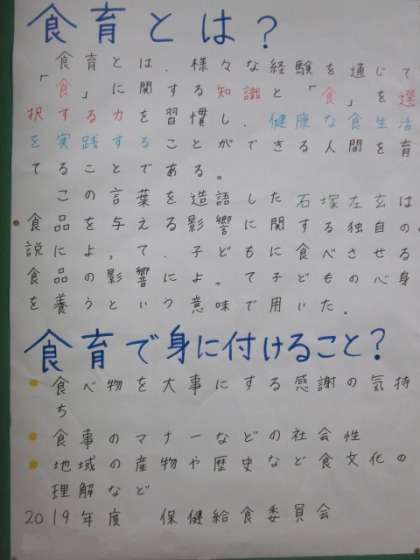 食育とは?
食育とは、様々な経験を通じて
「食」に関する知識と「食」を選
択する力を習慣し、健康な食生活
を実践することができる人間を育
てることである。
この言葉を造語した石塚左玄は
食品を与える影響に関する独自の
説によって、子どもに食べさせる
食品の影響によって子どもの心身
を養うという意味で用いた。
食育で身に付けること?
食べ物を大事にする感謝の気持
ち
食事のマナーなどの社会性
地域の産物や歴史など食文化の
理解など
2019年度 保健給食委員会